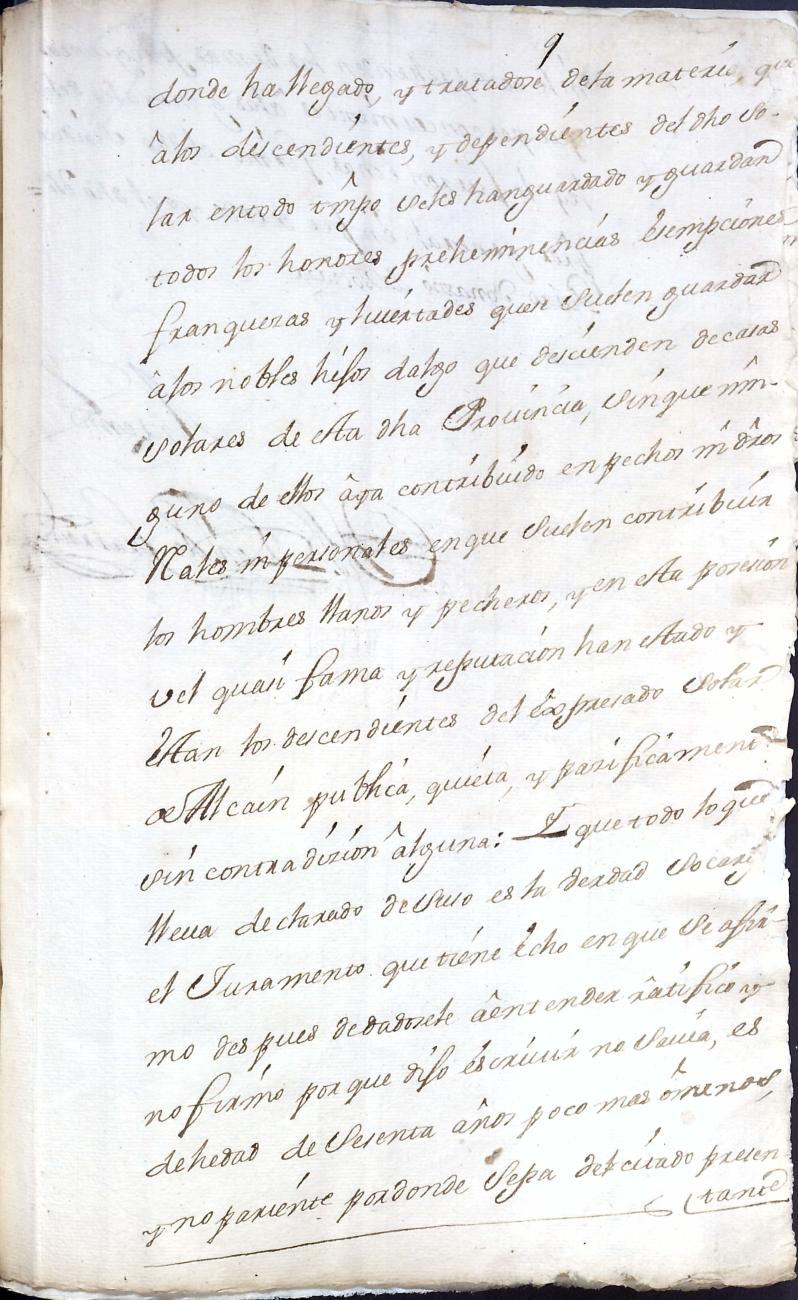 9
donde ha llegado, y tratadose dela materia, que
âlos descendientes, y dependientes del dho So-
lar entodo tmpo seles hanguardado y guardan
todos los honores preheminencias êsempciones
franquezas y livertades quese suelen guardar
âlos nobles hisos dalgo que descienden decasas
solares de esta dha Provincia, sinque nin-
guno de ellos âya contribuido en pechos ni dros
Rales ni personales enque suelen contribuir
los hombres llanos y pecheros, y en esta posesion
vel quasi fama y reputacion han estado y
Estan los descendientes del êxpresado Solar
de Alcain publica, quieta, y pazificamente
sin contradizion âlguna: Y que todo lo que
lleua declarado desuso es la verdad Socargo
el Juramento que tiene êcho en que se afir-
mo despues dedadosele âentender râtifico y
no firmo porque diso êscriuir no Sauia, es
dehedad de Sesenta âños poco mas ômenos,
y no pariente pordonde Sepa del citado presen-
tante